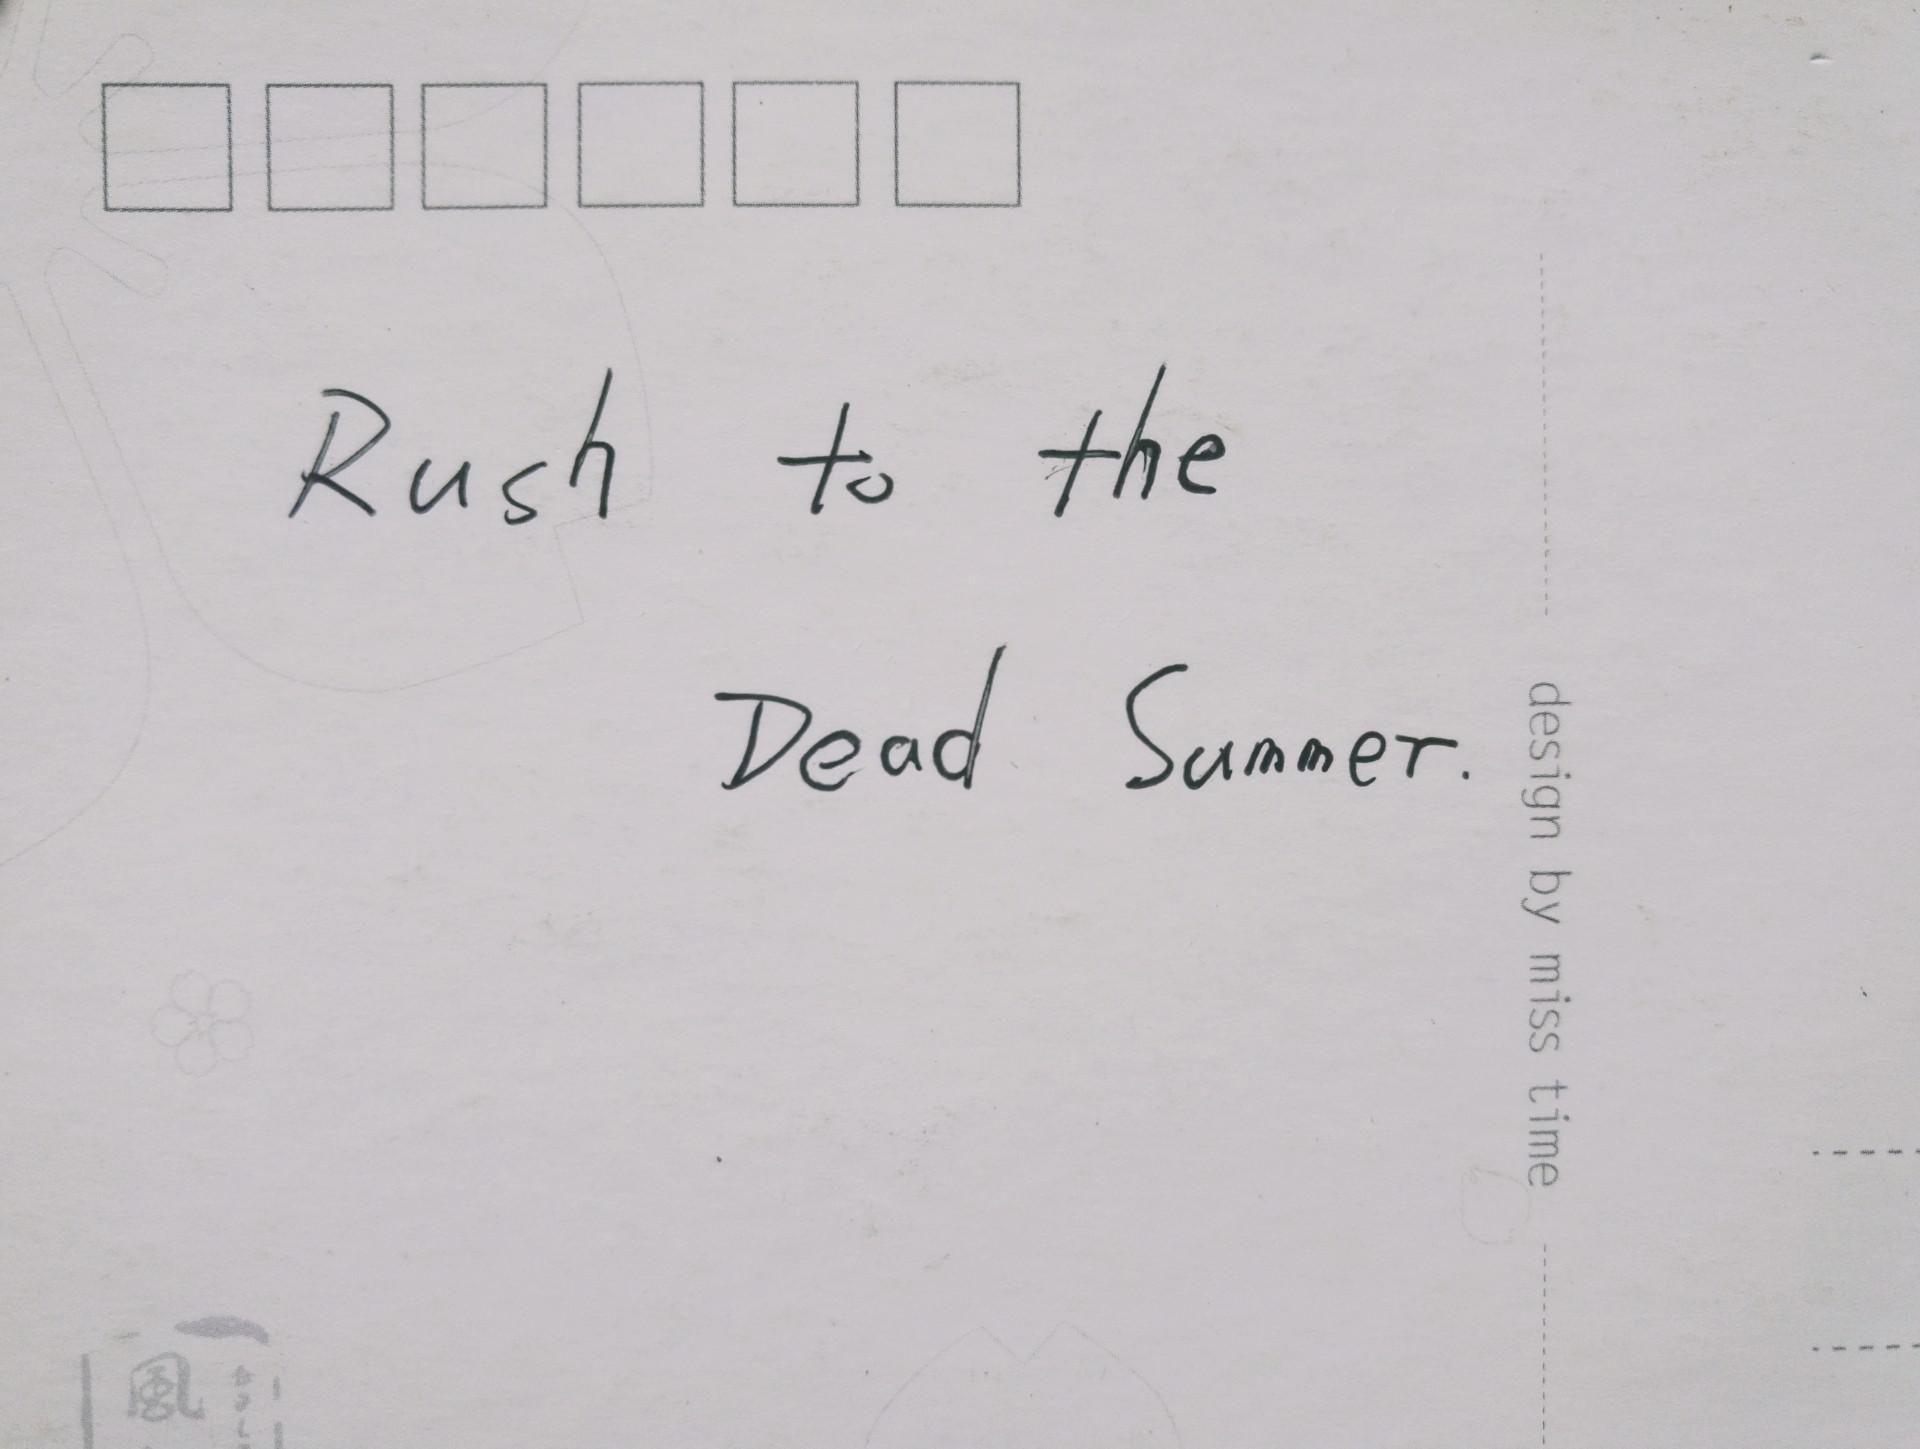 Rush to the
Dead Summer.
design by miss time
風